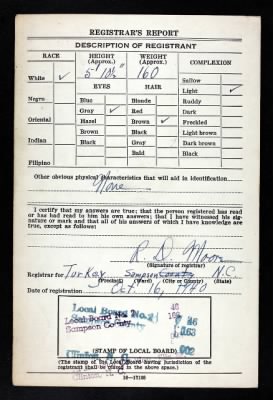 REGISTRAR'S REPORT
DESCRIPTION OF REGISTRANT
RACE HEIGHT (Approx.) WEIGHT (Approx.) COMPLEXION
White ✓ 5' 10½" 160 Sallow
EYES HAIR Light ✓
Negro Blue Blonde Ruddy
Gray ✓ Red Dark
Oriental Hazel Brown ✓ Freckled
Brown Black Light brown
Indian Black Gray Dark brown
Bald Black
Filipino
Other obvious physical characteristics that will aid in identification
None
I certify that my answers are true; that the person registered has read
or has had read to him his own answers; that I have witnessed his sig-
nature or mark and that all of his answers of which I have knowledge are
true, except as follows:
R. D. Moore
(Signature of registrar)
Registrar for Turkey Sampson County N.C.
(Precinct) (Ward) (City or County) (State)
Date of registration Oct. 16, 1940
Local Board No. 2
Sampson County
(STAMP OF LOCAL BOARD)
Clinton, N. C.
(The stamp of the Local Board having jurisdiction of the
registrant shall be placed in the above space.)
16—17105